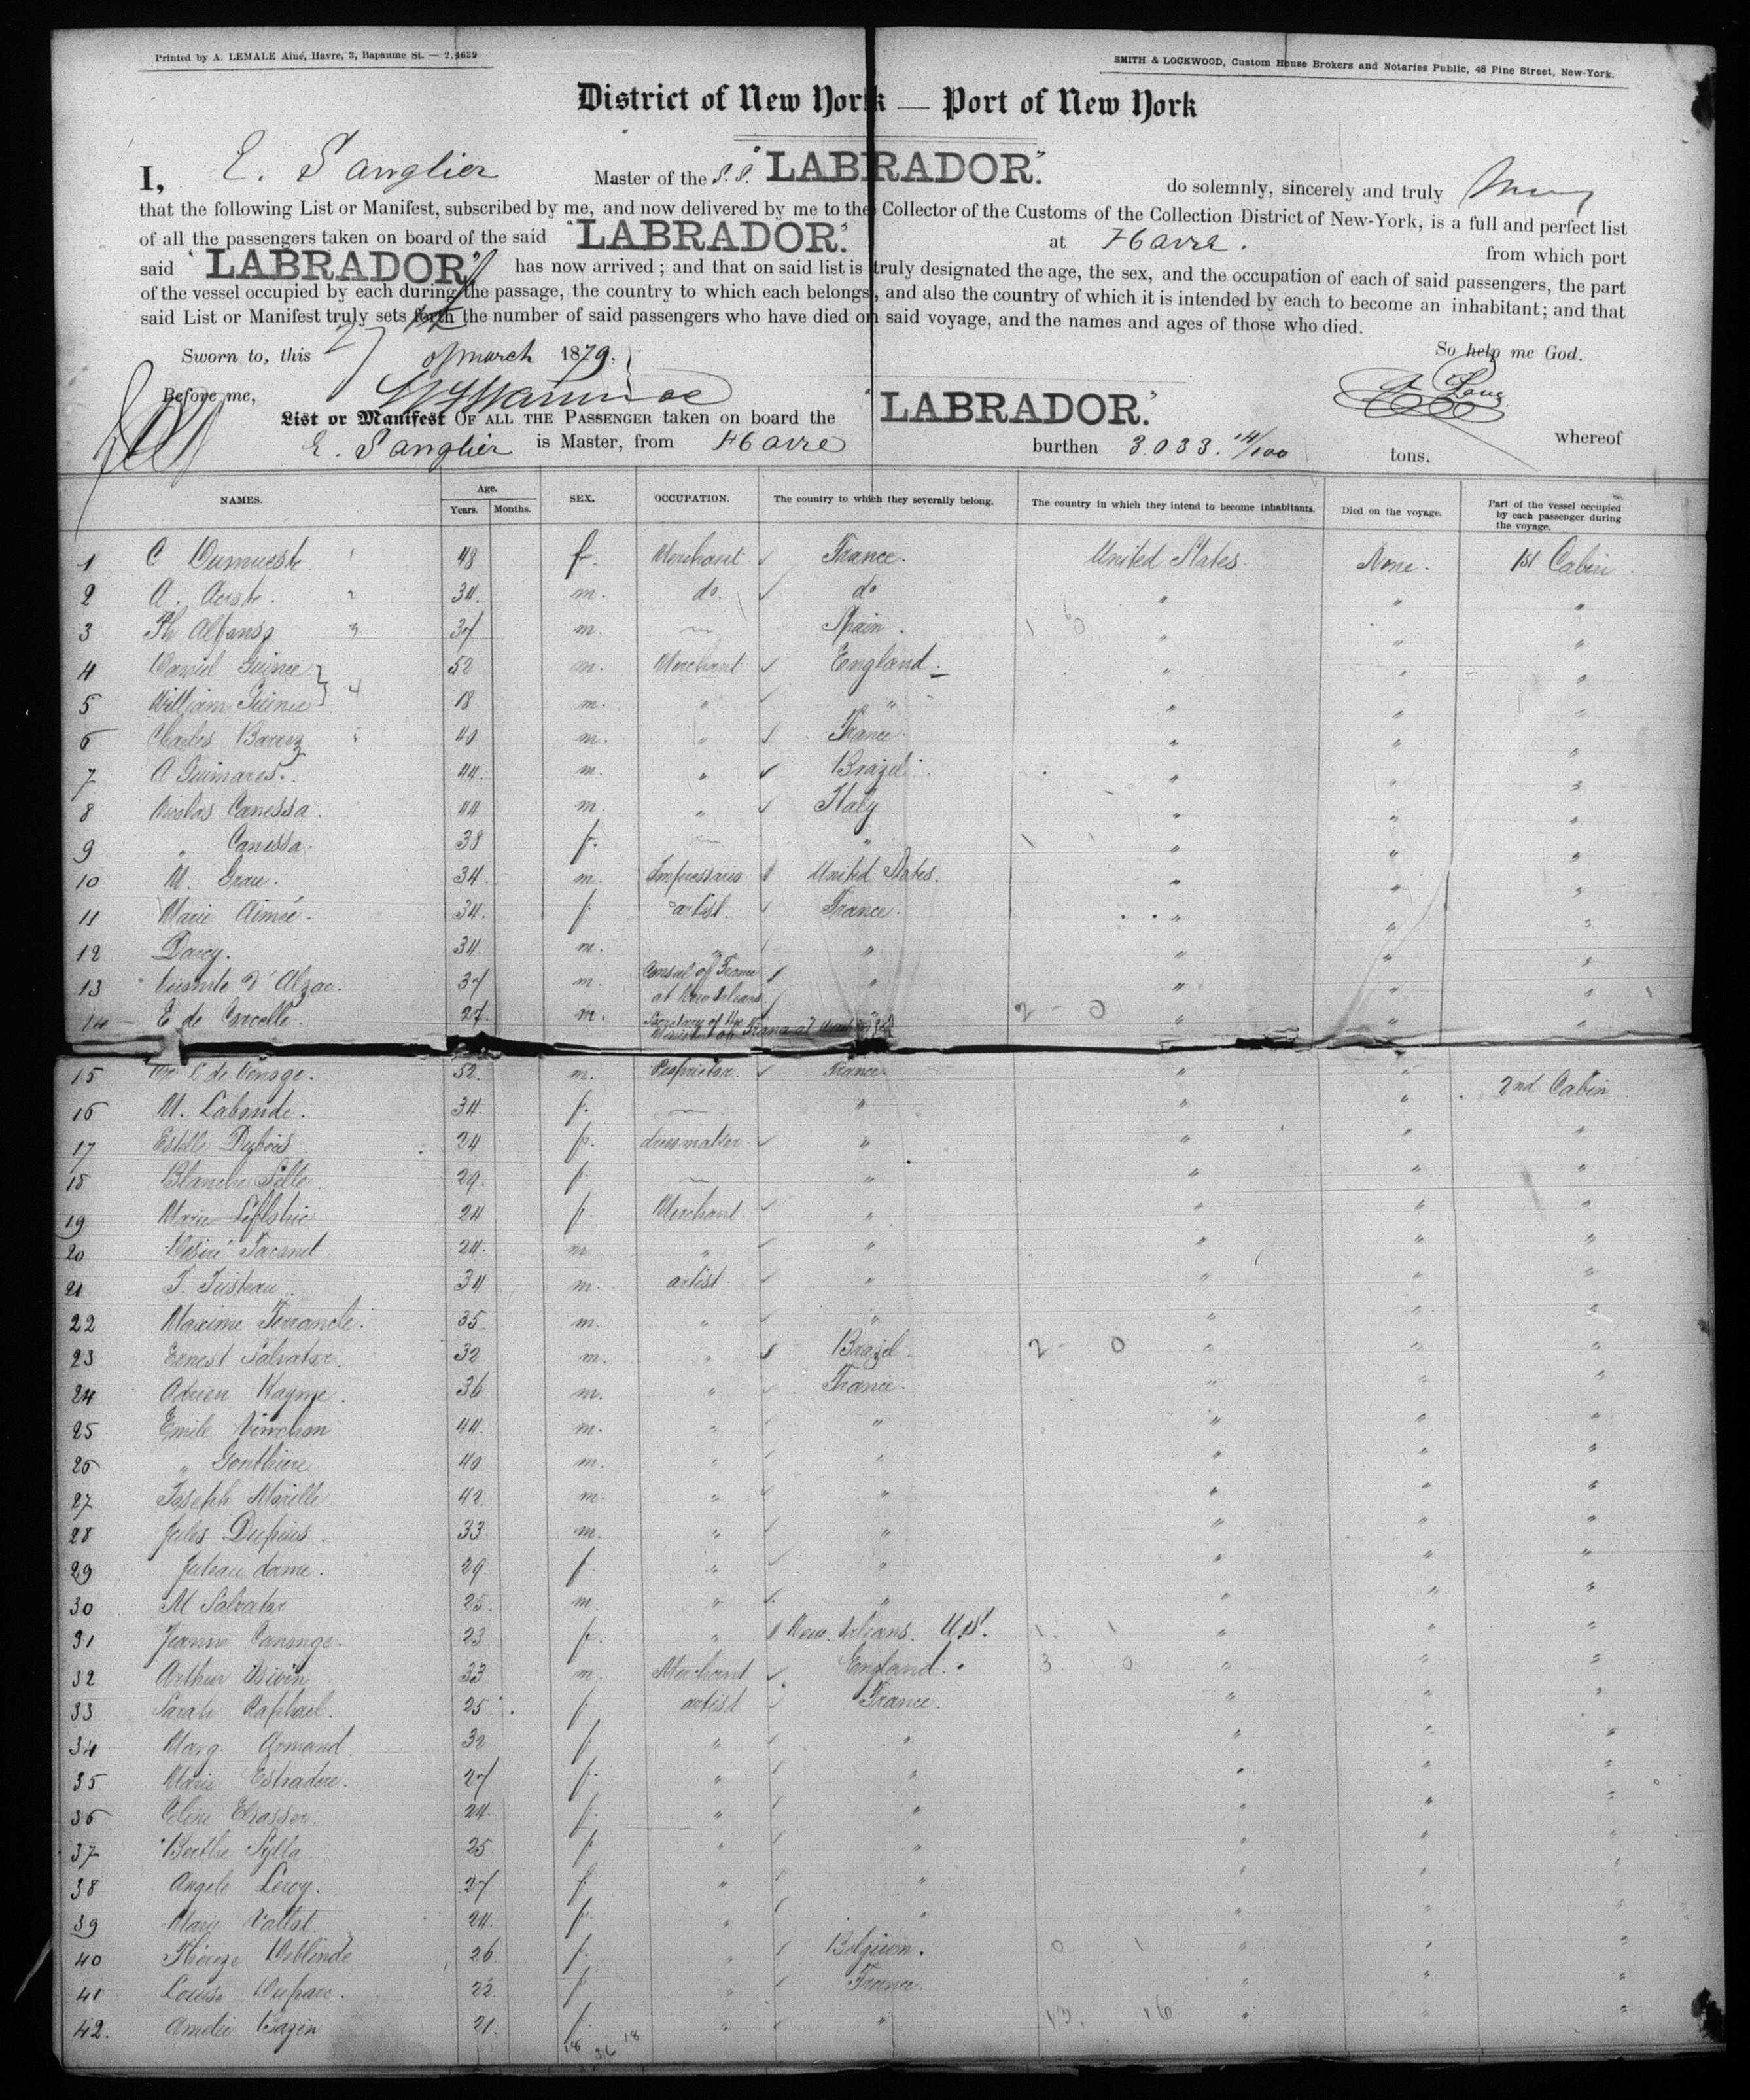 Printed by A. LEMALE Aîné, Havre, 3, Bapaume St. — 2.4629
SMITH & LOCKWOOD, Custom House Brokers and Notaries Public, 48 Pine Street, New-York.
District of New York — Port of New York
I, E. Sanglier Master of the S.S. "LABRADOR." do solemnly, sincerely and truly
that the following List or Manifest, subscribed by me, and now delivered by me to the Collector of the Customs of the Collection District of New-York, is a full and perfect list
of all the passengers taken on board of the said "LABRADOR." at Havre. from which port
said "LABRADOR" has now arrived; and that on said list is truly designated the age, the sex, and the occupation of each of said passengers, the part
of the vessel occupied by each during the passage, the country to which each belongs, and also the country of which it is intended by each to become an inhabitant; and that
said List or Manifest truly sets forth the number of said passengers who have died on said voyage, and the names and ages of those who died.
Sworn to, this 27 of March 1879. So help me God.
Before me,
List or Manifest OF ALL THE PASSENGER taken on board the "LABRADOR." whereof
E. Sanglier is Master, from Havre burthen 3.033. 14/100 tons.
NAMES. Age. Years. Months. SEX. OCCUPATION. The country to which they severally belong. The country in which they intend to become inhabitants. Died on the voyage. Part of the vessel occupied by each passenger during the voyage.
1 C 48 f. Merchant France. United States. None. 1st Cabin
2 A. 34. m. do. do " " "
3 37 m. — Spain. " " "
4 Daniel Guinee 52 m. Merchant England. " " "
5 William Guinee 18 m. " " " " "
6 Charles 40 m. " France. " " "
7 A Guimares. 44. m. " Brazil. " " "
8 Nicolas Canessa. 44 m. " Italy " " "
9 " Canessa. 38 f. — " " " "
10 M. Grau. 34. m. Impressario United States. " " "
11 Marie Aimée. 34. f. artist. France. " " "
12 Darcy. 34. m. " " " " "
13 Vicomte d'Alzac. 37 m. Consul of France at New Orleans " " " "
14 E de 27. m. Secretary of the " " "
15 de Venoge. 52. m. Proprietor. France. " " 2nd Cabin
16 M. Labonde. 34. f. — " " " "
17 Estelle Dubois 24 f. dressmaker " " " "
18 Blanche 29. f. — " " " "
19 Marie 24 f. Merchant " " " "
20 Désiré 24. m " " " " "
21 34 m. artist " " " "
22 Maxime 35. m. " " " " "
23 Ernest Salvator. 32 m. " Brazil. " " "
24 Adrien 36 m. " France. " " "
25 Emile 44. m. " " " " "
26 " Gonthier 40 m. " " " " "
27 Joseph 42. m. " " " " "
28 Jules Dupuis. 33 m. " " " " "
29 Juteau dame. 29. f. " " " " "
30 M Salvator 25. m. " " " " "
31 Jeanne Canonge. 23 f. " New Orleans. U.S. " " "
32 Arthur 33 m. Merchant England. " " "
33 Sarah Raphael. 25 f. artist France. " " "
34 Marg. Armand 32 f " " " " "
35 Marie Estradere. 27 f. " " " " "
36 Céline 24. f. " " " " "
37 Berthe Sylla 25 f " " " " "
38 Angele Leroy. 27 f. " " " " "
39 Marie Vallot 24. f. " " " " "
40 26 f. " Belgium. " " "
41 Louise Duparc. 22 f " France. " " "
42. Amélie Bazin 21. f. " " " " "